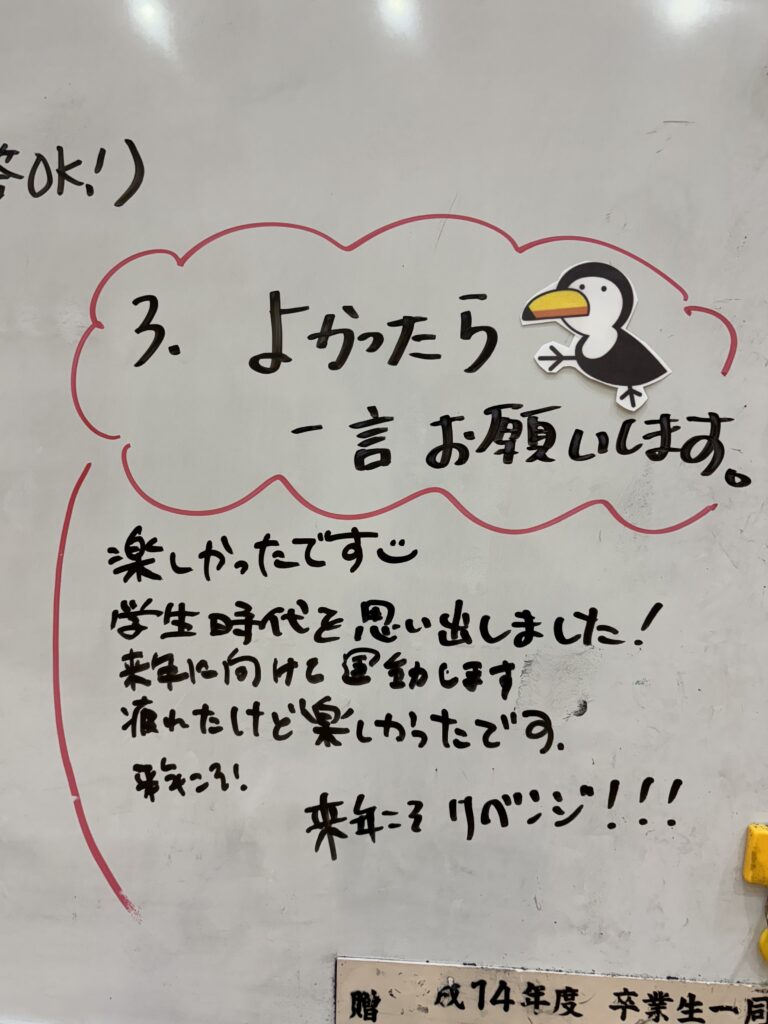 答OK!)
3. よかったら
一言お願いします。
楽しかったです
学生時代を思い出しました!
来年に向けて運動します
疲れたけど楽しかったです.
来年こそ!
来年こそリベンジ!!!
贈 成14年度 卒業生一同